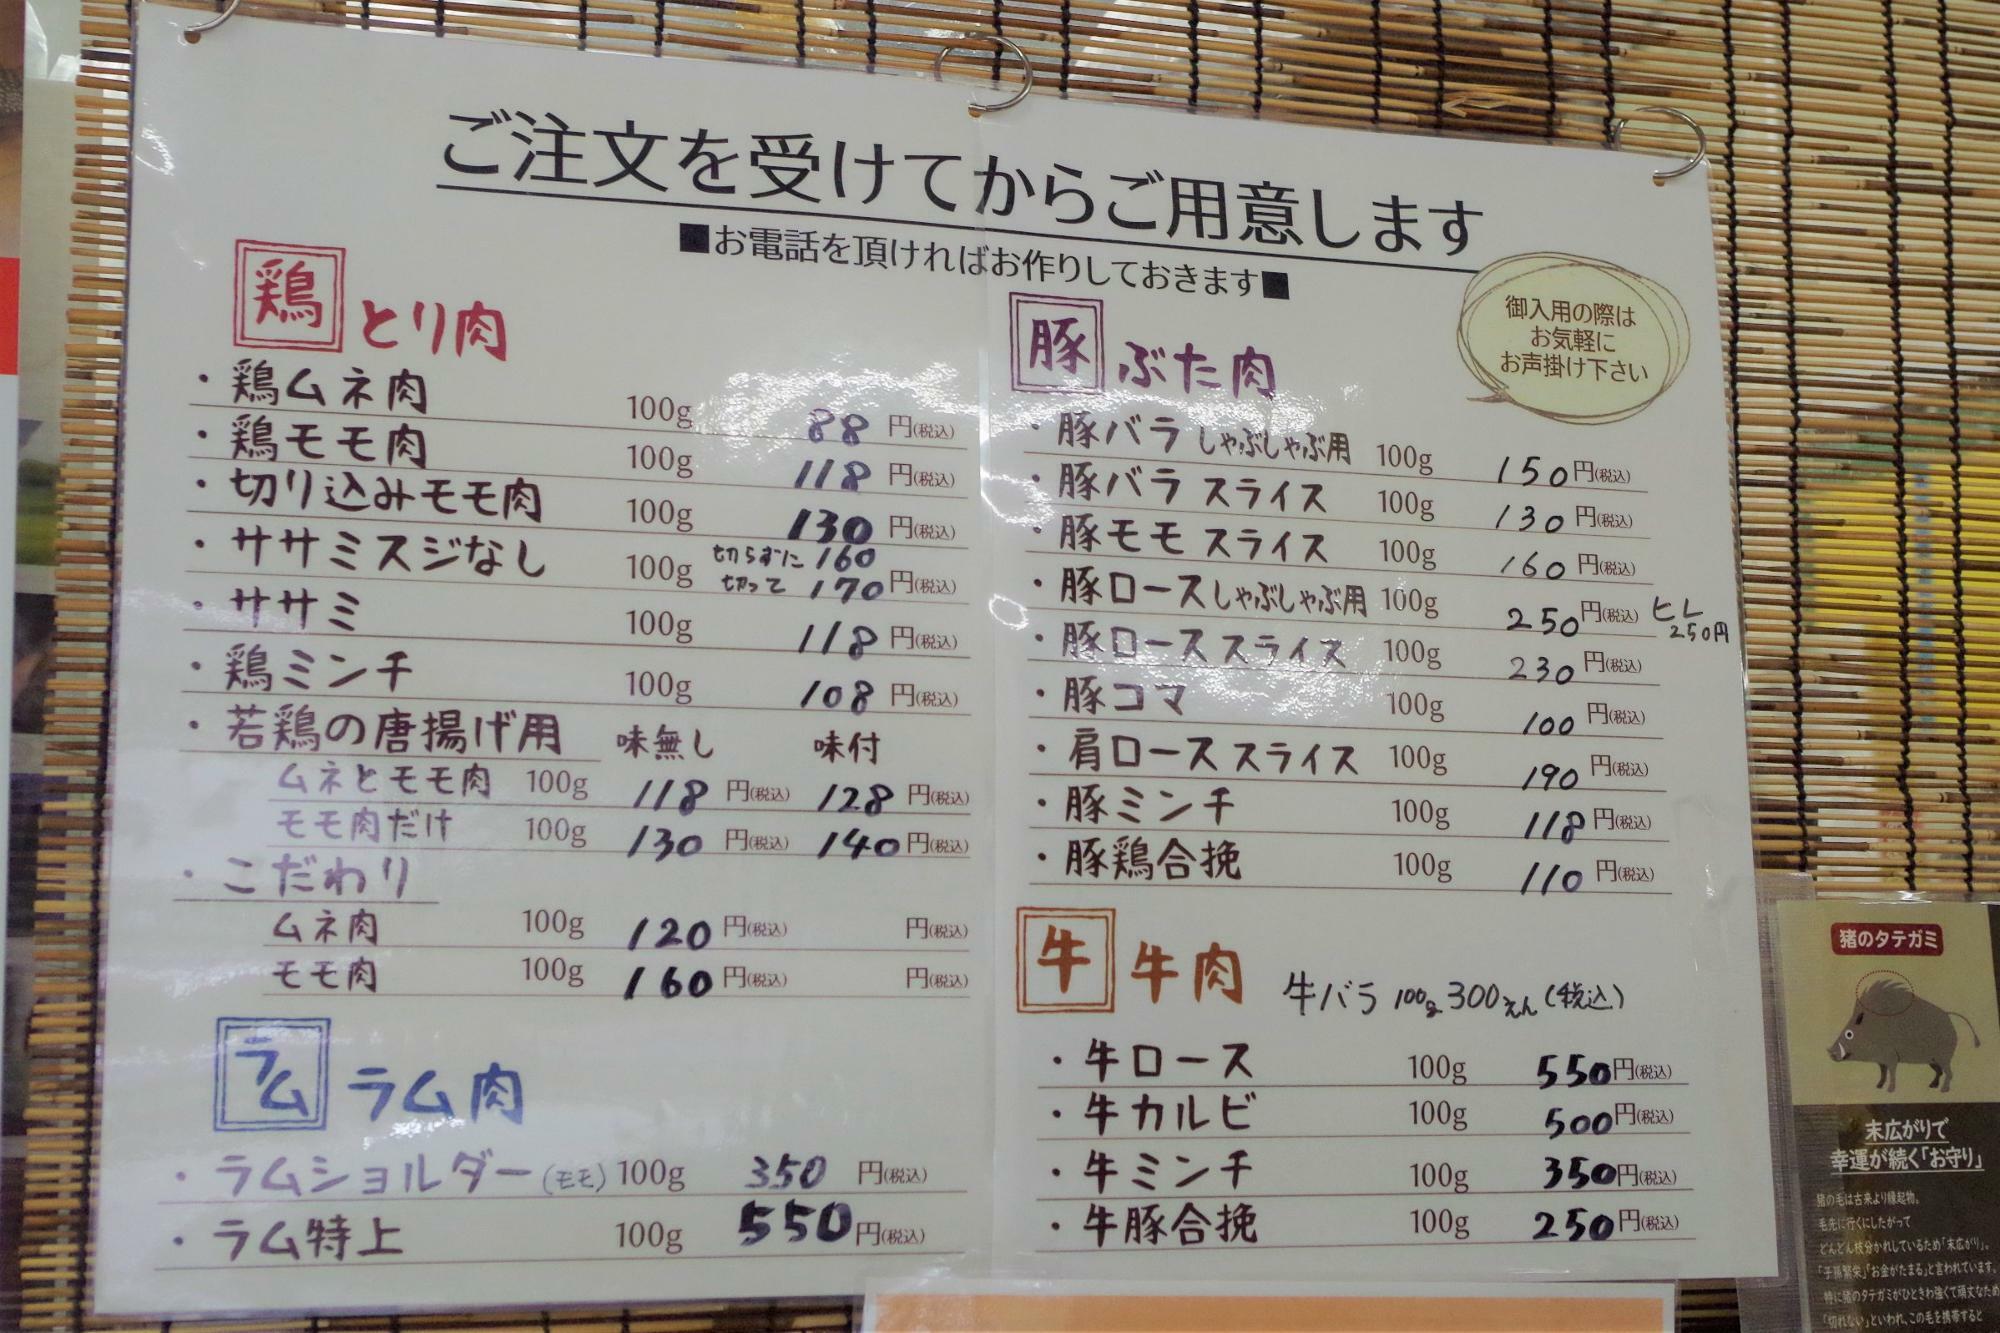 ご注文を受けてからご用意します
■お電話を頂ければお作りしておきます■
御入用の際は
お気軽に
お声掛け下さい
鶏 とり肉
・鶏ムネ肉 100g 88円(税込)
・鶏モモ肉 100g 118円(税込)
・切り込みモモ肉 100g 130円(税込)
・ササミスジなし 100g 切らずに 160 切って 170円(税込)
・ササミ 100g 118円(税込)
・鶏ミンチ 100g 108円(税込)
・若鶏の唐揚げ用 味無し 味付
ムネとモモ肉 100g 118円(税込) 128円(税込)
モモ肉だけ 100g 130円(税込) 140円(税込)
・こだわり
ムネ肉 100g 120円(税込) 円(税込)
モモ肉 100g 160円(税込) 円(税込)
ラム ラム肉
・ラムショルダー(モモ) 100g 350円(税込)
・ラム特上 100g 550円(税込)
豚 ぶた肉
・豚バラ しゃぶしゃぶ用 100g 150円(税込)
・豚バラ スライス 100g 130円(税込)
・豚モモ スライス 100g 160円(税込)
・豚ロースしゃぶしゃぶ用 100g 250円(税込) ヒレ 250円
・豚ロース スライス 100g 230円(税込)
・豚コマ 100g 100円(税込)
・肩ロース スライス 100g 190円(税込)
・豚ミンチ 100g 118円(税込)
・豚鶏合挽 100g 110円(税込)
牛 牛肉 牛バラ 100g 300えん(税込)
・牛ロース 100g 550円(税込)
・牛カルビ 100g 500円(税込)
・牛ミンチ 100g 350円(税込)
・牛豚合挽 100g 250円(税込)
猪のタテガミ
末広がりで
幸運が続く「お守り」
猪の毛は古来より縁起物。
毛先に行くにしたがって
どんどん枝分かれしているため「末広がり」。
「子孫繁栄」「お金がたまる」と言われています。
特に猪のタテガミがひときわ強くて頑丈なため
「切れない」といわれ、この毛を携帯すると